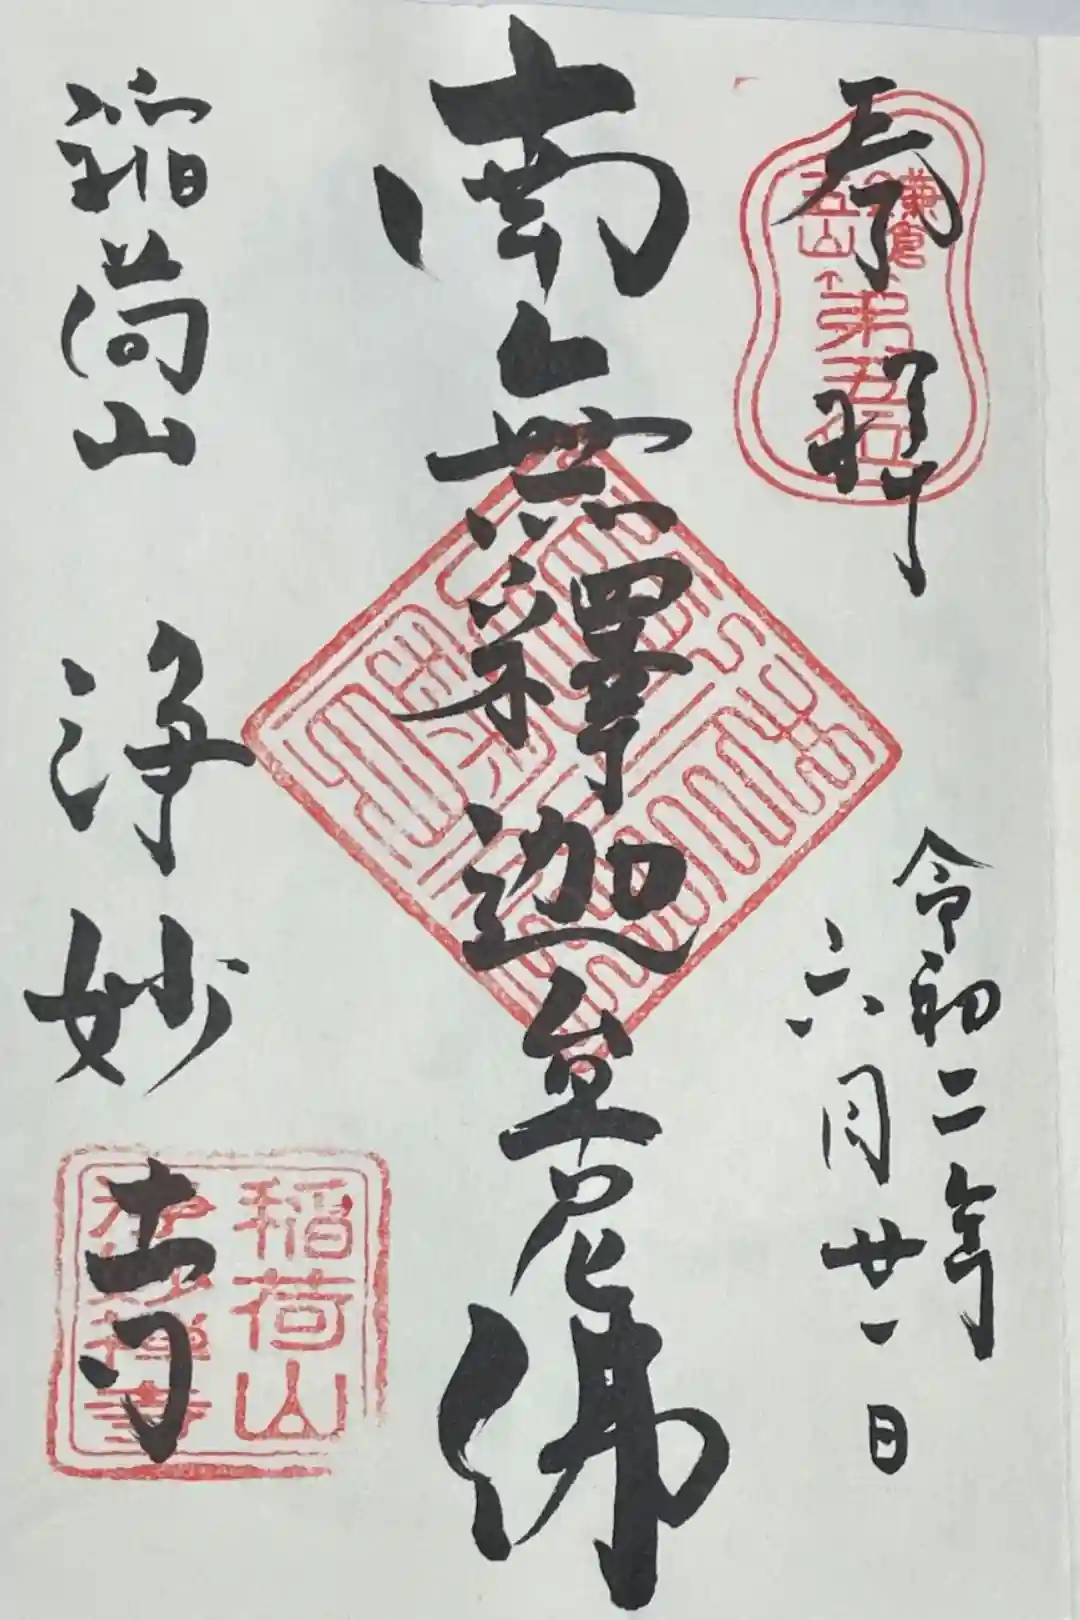 奉拝
鎌倉
五山
第五位
令和二年
六月廿一日
南無釋迦牟尼佛
稲荷山 浄妙寺
稲荷山
浄妙禅寺